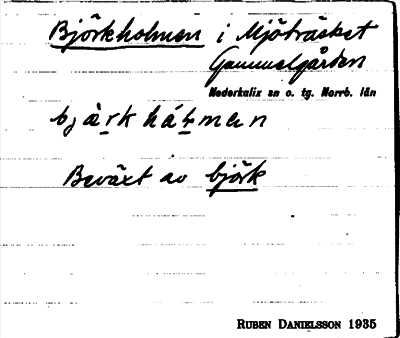 Björkholmen i Mjöträsket
Gammelgården
Nederkalix sn o. tg. Norrb. län
bjàrkhátmen
Beväxt av björk
RUBEN DANIELSSON 1935